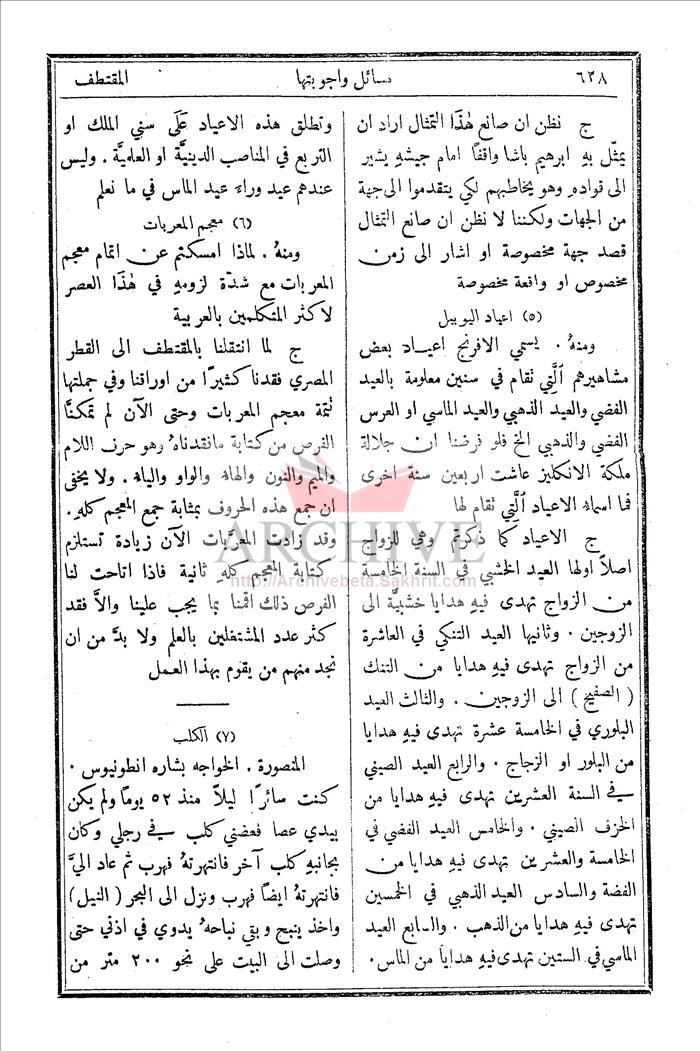 ٦٢٨ مسائل واجوبتها المقتطف
ج نظن ان صانع هٰذَا التمثال اراد ان
يمثّل بهِ ابرهيم باشا واقفًا امام جيشهِ يشير
الى قوادهِ وهو يخاطبهم لكي يتقدموا الى جهة
من الجهات ولكننا لا نظن ان صانع التمثال
قصد جهة مخصوصة او اشار الى زمن
مخصوص او واقعة مخصوصة
(٥) اعياد اليوبيل
ومنهُ . يسمي الافرنج اعياد بعض
مشاهيرهم الَّتِي تقام في سنين معلومة بالعيد
الفضي والعيد الذهبي والعيد الماسي او العرس
الفضي والذهبي الخ فلو فرضنا ان جلالة
ملكة الانكليز عاشت اربعين سنة اخرى
فما اسماء الاعياد الَّتِي تقام لها
ج الاعياد كما ذكرتم وهي للزواج
اصلاً اولها العيد الخشبي في السنة الخامسة
من الزواج تهدى فيهِ هدايا خشبيَّة الى
الزوجين . وثانيها العيد التنكي في العاشرة
من الزواج تهدى فيهِ هدايا من التنك
( الصفيح ) الى الزوجين . والثالث العيد
البلوري في الخامسة عشرة تهدى فيهِ هدايا
من البلور او الزجاج . والرابع العيد الصيني
في السنة العشرين تهدى فيهِ هدايا من
الخزف الصيني . والخامس العيد الفضي في
الخامسة والعشرين تهدى فيهِ هدايا من
الفضة والسادس العيد الذهبي في الخمسين
تهدى فيهِ هدايا من الذهب . والسابع العيد
الماسي في الستين تهدى فيهِ هدايا من الماس .
وتطلق هذه الاعياد عَلَى سني الملك او
التربع في المناصب الدينيَّة او العلميَّة . وليس
عندهم عيد وراء عيد الماس في ما نعلم
(٦) معجم المعربات
ومنهُ . لماذا امسكتم عن اتمام معجم
المعربات مع شدَّة لزومهِ في هٰذَا العصر
لاكثر المتكلمين بالعربية
ج لما انتقلنا بالمقتطف الى القطر
المصري فقدنا كثيرًا من اوراقنا وفي جملتها
تتمة معجم المعربات وحتى الآن لم تمكنَّا
الفرص من كتابة ما فقدناهُ وهو حرف اللام
والميم والنون والهاء والواو والياء . ولا يخفى
ان جمع هذه الحروف بمثابة جمع المعجم كلهِ .
وقد زادت المعرَّبات الآن زيادة تستلزم
كتابة المعجم كلهِ ثانية فاذا اتاحت لنا
الفرص ذلك اقمنا بما يجب علينا والاَّ فقد
كثر عدد المشتغلين بالعلم ولا بدَّ من ان
نجد منهم من يقوم بهذا العمل
(٧) الكلب
المنصورة . الخواجه بشاره انطونيوس .
كنت سائرًا ليلاً منذ ٥٢ يومًا ولم يكن
بيدي عصا فعضني كلب في رجلي وكان
بجانبهِ كلب آخر فانتهرتهُ فهرب ثم عاد اليَّ
فانتهرتهُ ايضًا فهرب ونزل الى البحر ( النيل )
واخذ ينبح وبقي نباحهُ يدوي في اذني حتى
وصلت الى البيت على نحو ٢٠٠ متر من
ARCHIVE
http://Archivebeta.Sakhrit.com